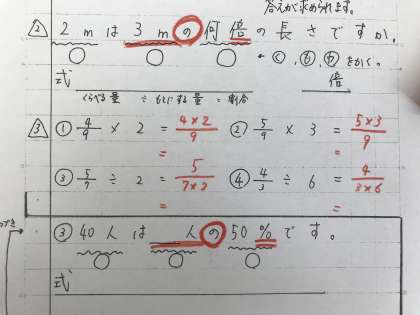 答えが求められます。
② 2mは3mの何倍の長さですか。
・く、も、わをかく。
式 倍
くらべる量 ÷ もとにする量 = 割合
③ ① 4/9 × 2 = 4×2/9 ② 5/9 × 3 = 5×3/9
= =
③ 5/7 ÷ 2 = 5/7×2 ④ 4/3 ÷ 6 = 4/3×6
= =
③ 40人は 人の50%です。
式